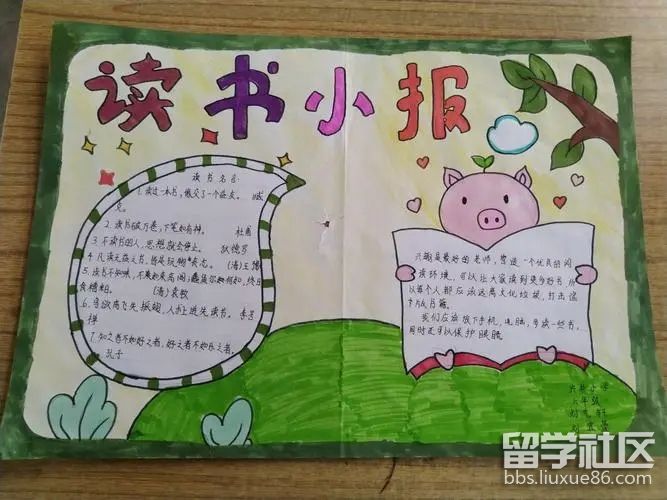 读书小报
读书名言:
1.读过一本书,像交了一个益友。 臧
克
2.读书破万卷,下笔如有神。 杜甫
3.不读书的人,思想就会停止。 狄德罗
4.凡读无益之书,皆是玩物丧志。 (清)王豫
5.读书不知味,不如束高阁;蠹鱼尔何如,终日
食糟粕。 (清)袁枚
6.鸟欲高飞先振翅,人求上进先读书。 李若
禅
7.知之者不如好之者,好之者不如乐之者。
孔子
兴趣是最好的老师,营造一个优良的阅
读环境,可以让大家读到更多好书 所
以每个人都应该远离文化垃圾,打击盗
书籍。
我们应该放下手机,电脑,多读一些书,
同时还可以保护眼睛
小学
六年级
留学社区
bbs.liuxue86.com